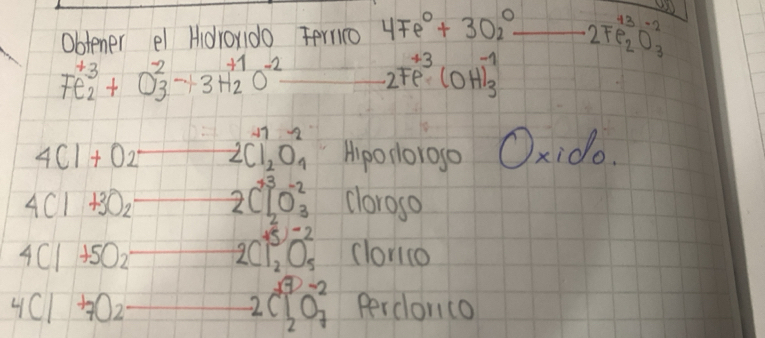 Obtener el Hidroxido Ferrico 4Fe⁰ + 3O₂⁰ —— 2Fe₂⁺³O₃⁻²
Fe₂⁺³ + O₃⁻² + 3H₂⁺¹O⁻² —— 2Fe⁺³(OH)₃⁻¹
4Cl + O₂ —— 2Cl₂⁺¹O₁⁻² Hipocloroso Oxido.
4Cl + 3O₂ —— 2Cl₂⁺³O₃⁻² Cloroso
4Cl + 5O₂ —— 2Cl₂⁺⁵O₅⁻² Clorico
4Cl + 7O₂ —— 2Cl₂⁺⁷O₇⁻² Perclorico